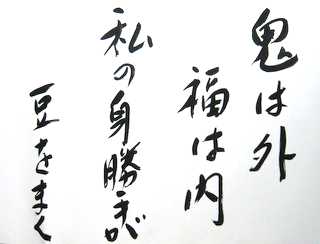 鬼は外
福は内
私の身勝手が
豆をまく